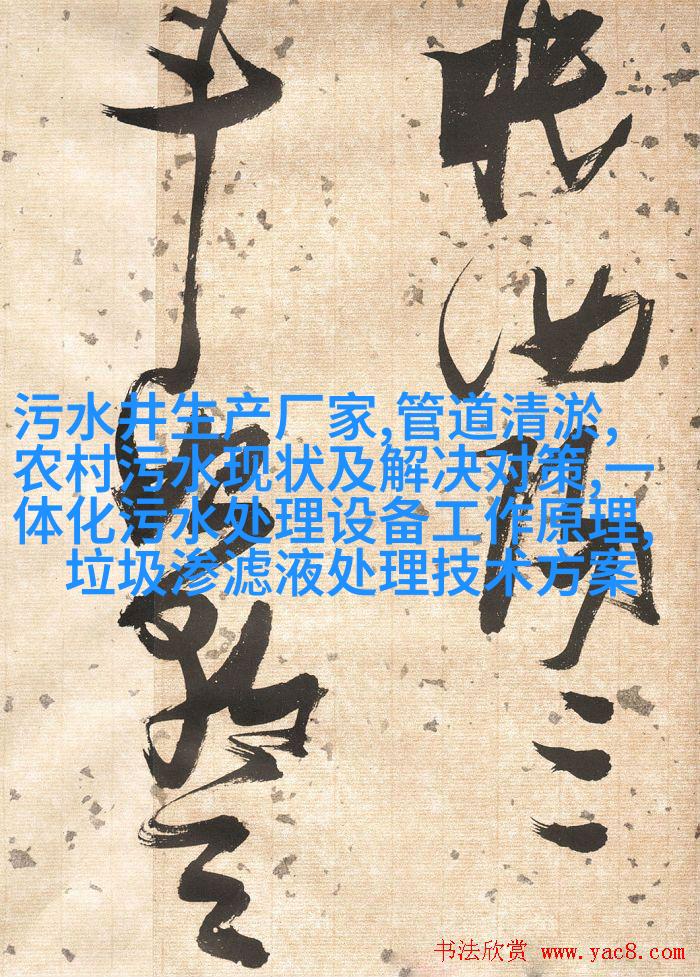 眠汝陽三
斗始朝天
污水井生产厂家,管道清淤,
农村污水现状及解决对策,一
体化污水处理设备工作原理,
垃圾渗滤液处理技术方案
书法欣赏 www.yac8.com